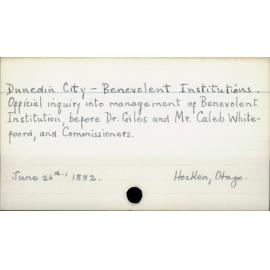 Dunedin City - Benevolent Institutions.
Official inquiry into management of Benevolent
Institution, before Dr. Giles and Mr. Caleb White-
foord, and Commissioners.
June 26th, 1882.
Hocken, Otago.